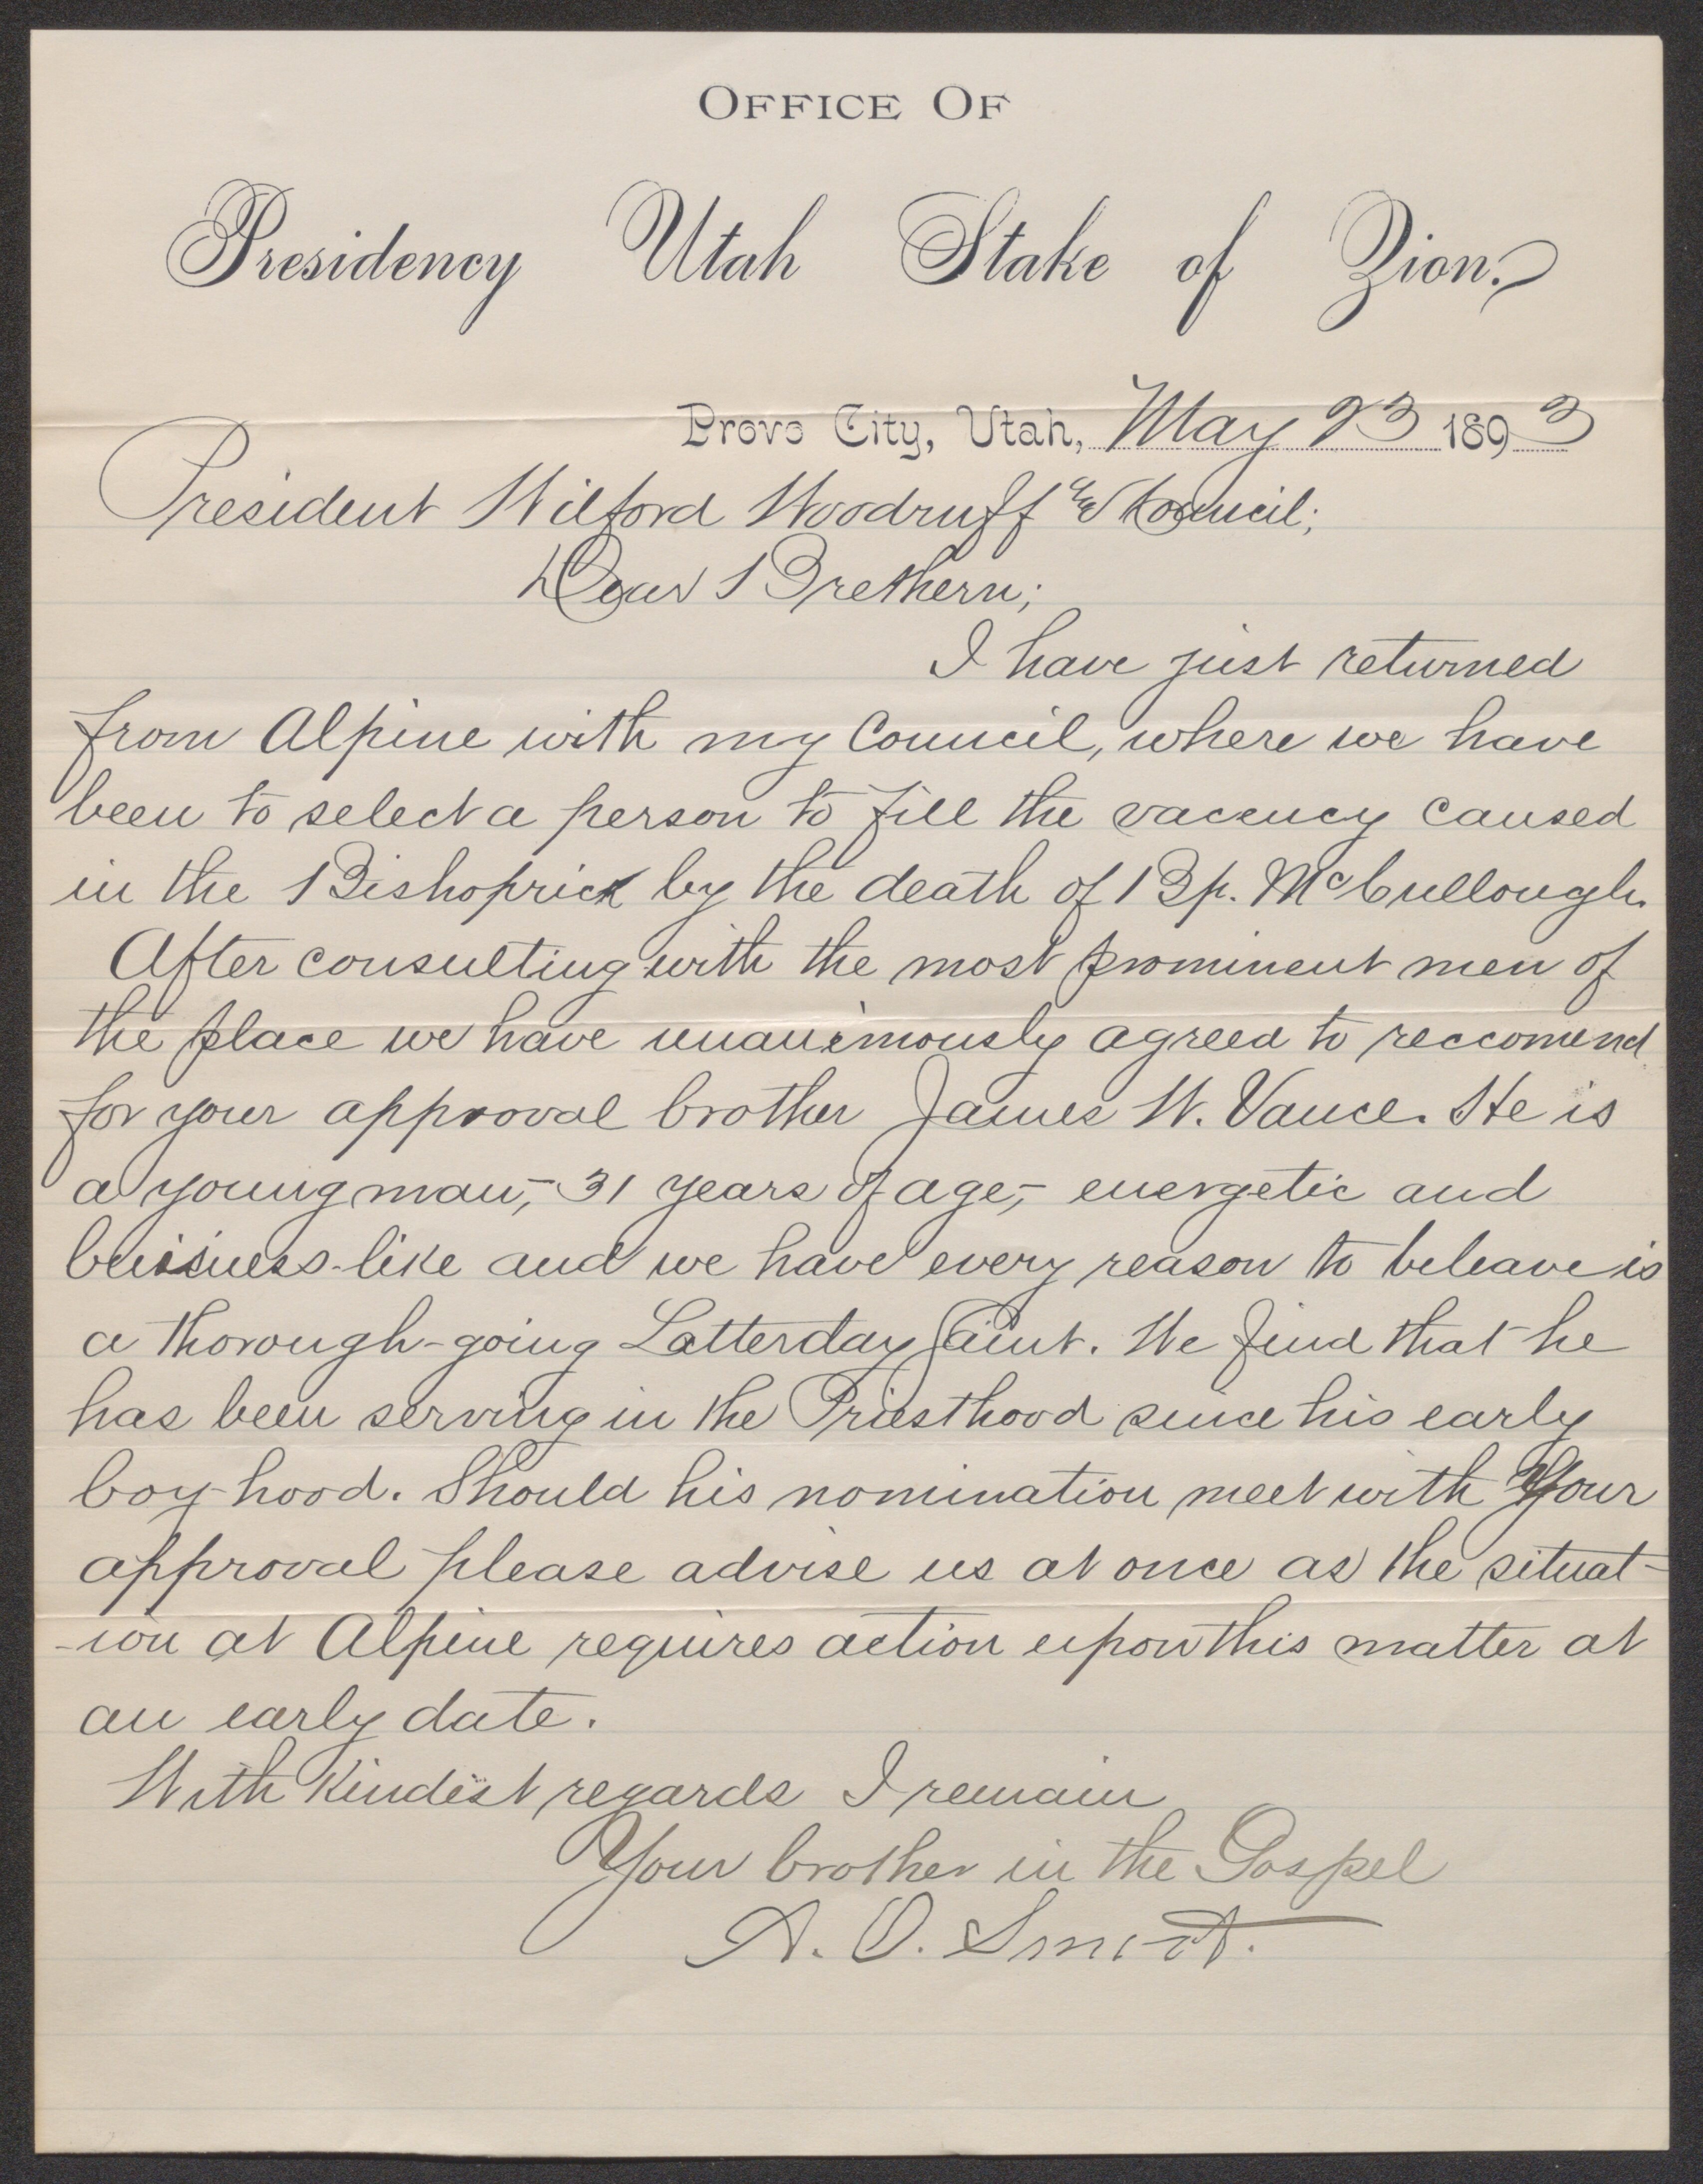 OFFICE OF
Presidency Utah Stake of Zion.
Provo City, Utah, May 23 1893
President Wilford Woodruff & Council;
Dear Brethern;
I have just returned
from Alpine with my Council, where we have
been to select a person to fill the vacency caused
in the Bishoprick by the death of Bp. McCullough.
After consulting with the most prominent men of
the place we have unanimously agreed to reccomend
for your approval brother James W. Vance. He is
a young man,- 31 years of age,- energetic and
buisness-like and we have every reason to beleave is
a thorough-going Latterday Saint. We find that he
has been serving in the Priesthood since his early
boy-hood. Should his nomination meet with Your
approval please advise us at once as the situat-
-ion at Alpine requires action upon this matter at
an early date.
With Kindest regards I remain
Your brother in the Gospel
A. O. Smoot.